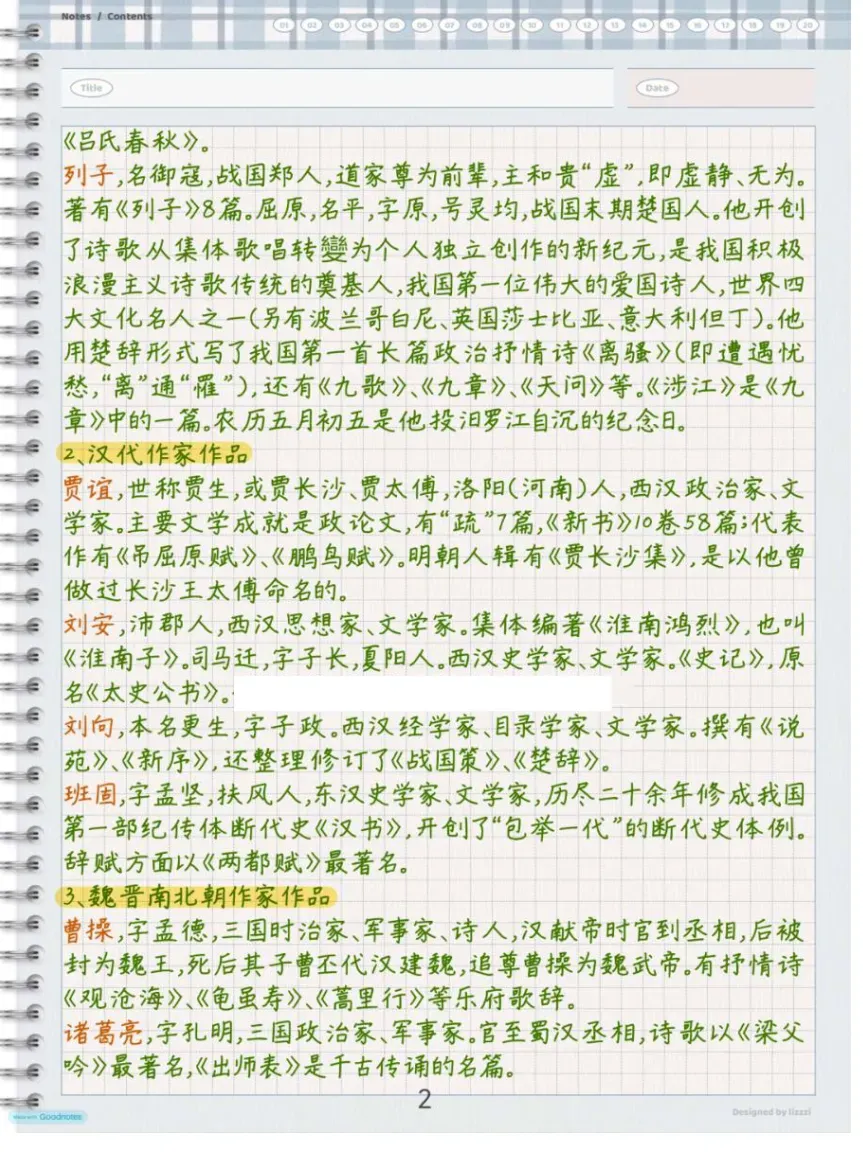 Notes / Contents
01 02 03 04 05 06 07 08 09 10 11 12 13 14 15 16 17 18 19 20
Title
Date
《吕氏春秋》。
列子,名御寇,战国郑人,道家尊为前辈,主和贵“虚”,即虚静、无为。
著有《列子》8篇。屈原,名平,字原,号灵均,战国末期楚国人。他开创
了诗歌从集体歌唱转變为个人独立创作的新纪元,是我国积极
浪漫主义诗歌传统的奠基人,我国第一位伟大的爱国诗人,世界四
大文化名人之一(另有波兰哥白尼、英国莎士比亚、意大利但丁)。他
用楚辞形式写了我国第一首长篇政治抒情诗《离骚》(即遭遇忧
愁,“离”通“罹”),还有《九歌》、《九章》、《天问》等。《涉江》是《九
章》中的一篇。农历五月初五是他投汨罗江自沉的纪念日。
2、汉代作家作品
贾谊,世称贾生,或贾长沙、贾太傅,洛阳(河南)人,西汉政治家、文
学家。主要文学成就是政论文,有“疏”7篇,《新书》10卷58篇;代表
作有《吊屈原赋》、《鹏鸟赋》。明朝人辑有《贾长沙集》,是以他曾
做过长沙王太傅命名的。
刘安,沛郡人,西汉思想家、文学家。集体编著《淮南鸿烈》,也叫
《淮南子》。司马迁,字子长,夏阳人。西汉史学家、文学家。《史记》,原
名《太史公书》。
刘向,本名更生,字子政。西汉经学家、目录学家、文学家。撰有《说
苑》、《新序》,还整理修订了《战国策》、《楚辞》。
班固,字孟坚,扶风人,东汉史学家、文学家,历尽二十余年修成我国
第一部纪传体断代史《汉书》,开创了“包举一代”的断代史体例。
辞赋方面以《两都赋》最著名。
3、魏晋南北朝作家作品
曹操,字孟德,三国时治家、军事家、诗人,汉献帝时官到丞相,后被
封为魏王,死后其子曹丕代汉建魏,追尊曹操为魏武帝。有抒情诗
《观沧海》、《龟虽寿》、《蒿里行》等乐府歌辞。
诸葛亮,字孔明,三国政治家、军事家。官至蜀汉丞相,诗歌以《梁父
吟》最著名,《出师表》是千古传诵的名篇。
2
Made with Goodnotes
Designed by lizzzi